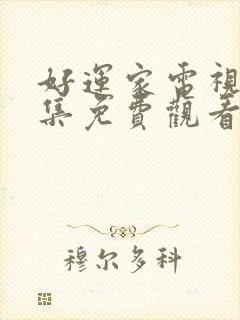 好運家電視
集免費觀看
穆尔多科